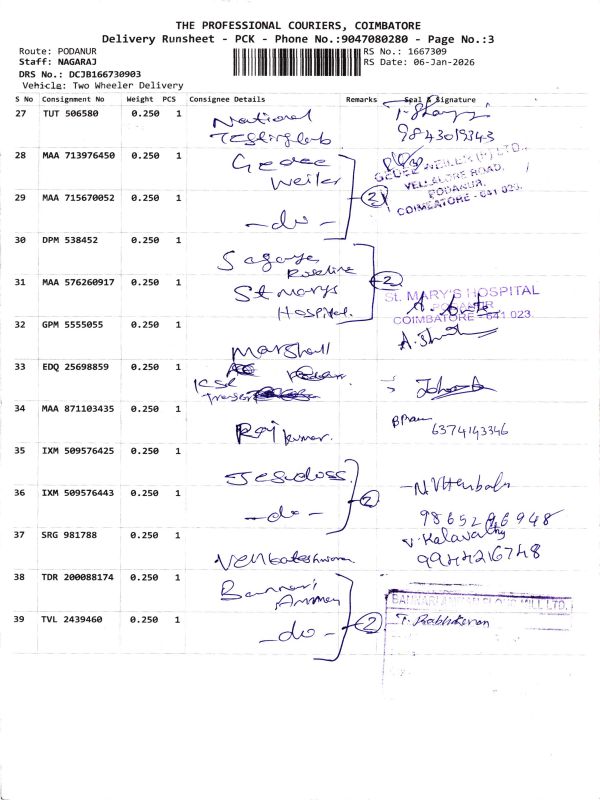 THE PROFESSIONAL COURIERS, COIMBATORE
Delivery Runsheet - PCK - Phone No.:9047080280 - Page No.:3
Route: PODANUR
RS No.: 1667309
Staff: NAGARAJ
RS Date: 06-Jan-2026
DRS No.: DCJB166730903
Vehicle: Two Wheeler Delivery
S No Consignment No Weight PCS Consignee Details Remarks Seal & Signature
27 TUT 506580 0.250 1 National
Testing lab 9843019343
28 MAA 713976450 0.250 1 Gedee
Weiler
GEDEE WEILER (P) LTD.,
VELLALORE ROAD,
PODANUR,
COIMBATORE - 641 023.
29 MAA 715670052 0.250 1 - do - 2
30 DPM 538452 0.250 1 Sagaya
Roseline
31 MAA 576260917 0.250 1 St Marys
Hospital. 2
St. MARY'S HOSPITAL
PODANUR
COIMBATORE - 641 023.
32 GPM 5555055 0.250 1 Marshall
33 EDQ 25698859 0.250 1
34 MAA 871103435 0.250 1 Raj kumar. 6374143346
35 IXM 509576425 0.250 1 Jesudoss
36 IXM 509576443 0.250 1 - do - 2
9865296948
37 SRG 981788 0.250 1 Venkateshwara
V. Kalavathy
9944216748
38 TDR 200088174 0.250 1 Bannari
Amman
39 TVL 2439460 0.250 1 - do - 2 T. Prabhakaran